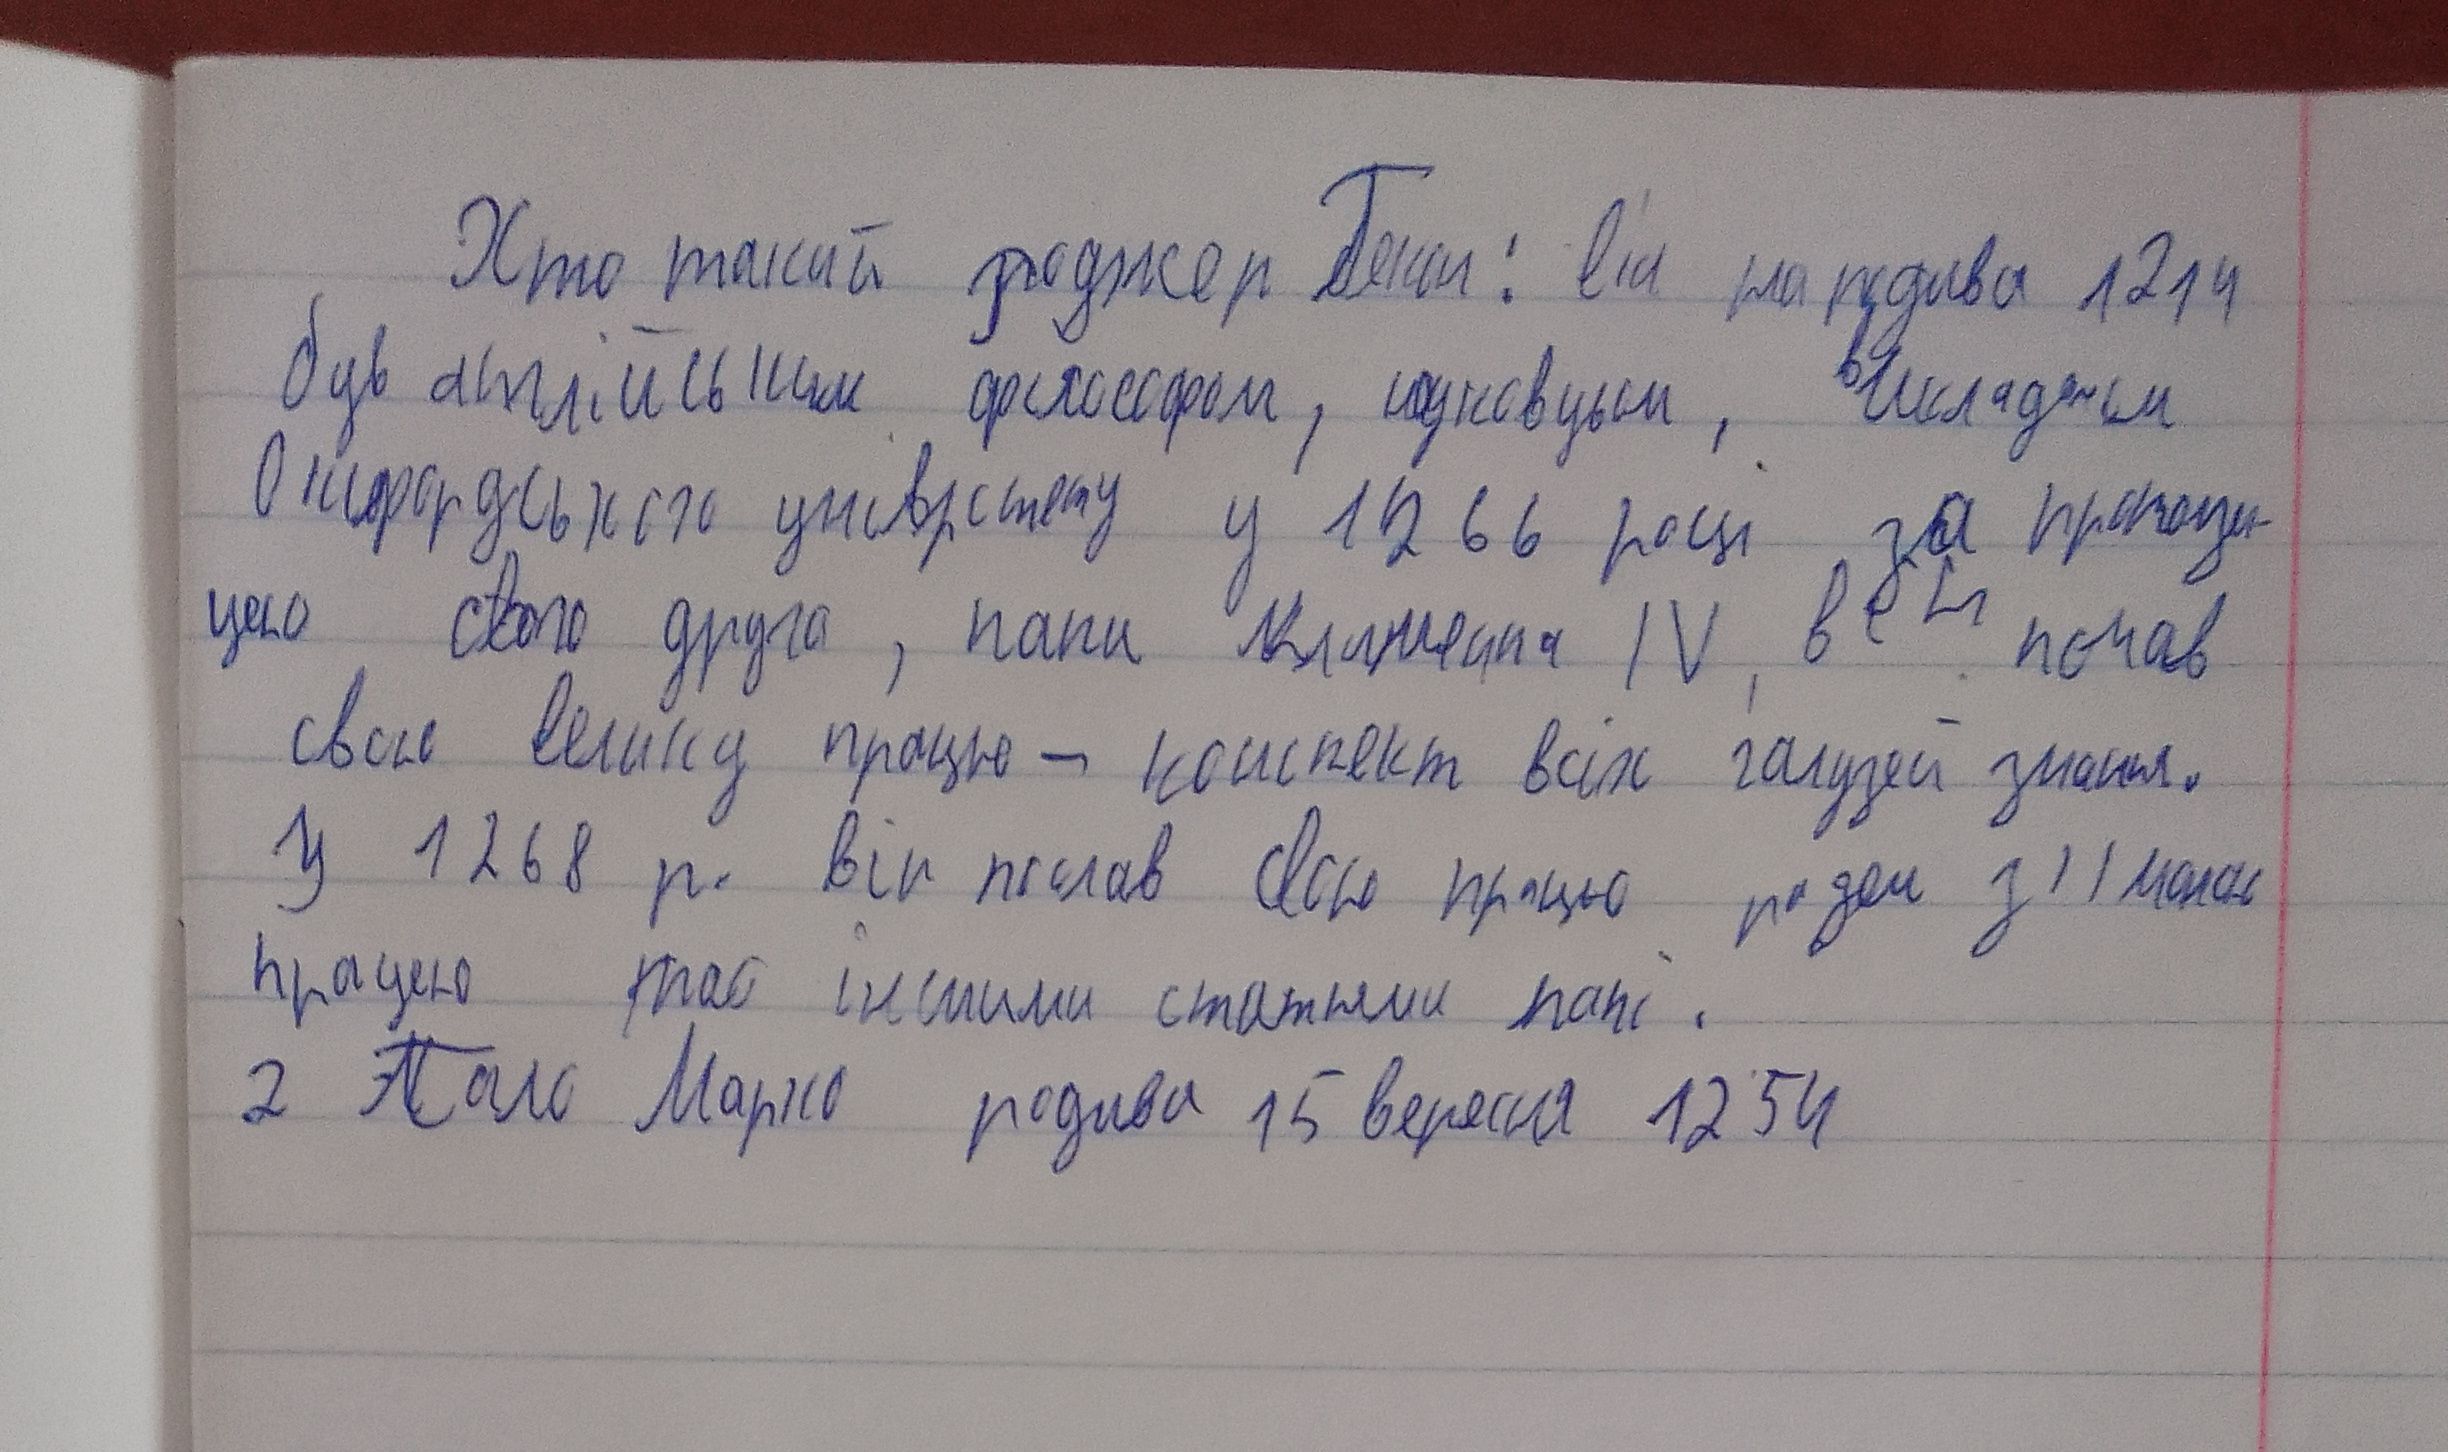 Хто такий роджер Бекон: він народива 1214
був англійським філософом, науковцем, викладачем
Оксфордського університету у 1266 році за пропози-
цею свого друга, папи Климента IV, почав
свою велику працю - конспект всіх галузей знання.
У 1268 р. він послав свою працю разом з малою
працею та іншими статтями папі.
2 Поло Марко родива 15 вересня 1254